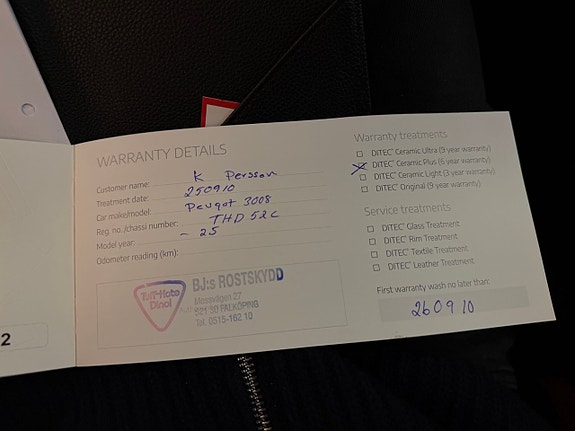 WARRANTY DETAILS
Customer name: K Persson
Treatment date: 250910
Car make/model: Peugot 3008
Reg. no./chassi number: THD 52C
Model year: - 25
Odometer reading (km):
Tuff-Kote
Dinol
BJ:s ROSTSKYDD
Mossvägen 27
521 50 FALKÖPING
Tel. 0515-162 10
Warranty treatments
DITEC® Ceramic Ultra (9 year warranty)
DITEC® Ceramic Plus (6 year warranty)
DITEC® Ceramic Light (3 year warranty)
DITEC® Original (9 year warranty)
Service treatments
DITEC® Glass Treatment
DITEC® Rim Treatment
DITEC® Textile Treatment
DITEC® Leather Treatment
First warranty wash no later than:
260910
2